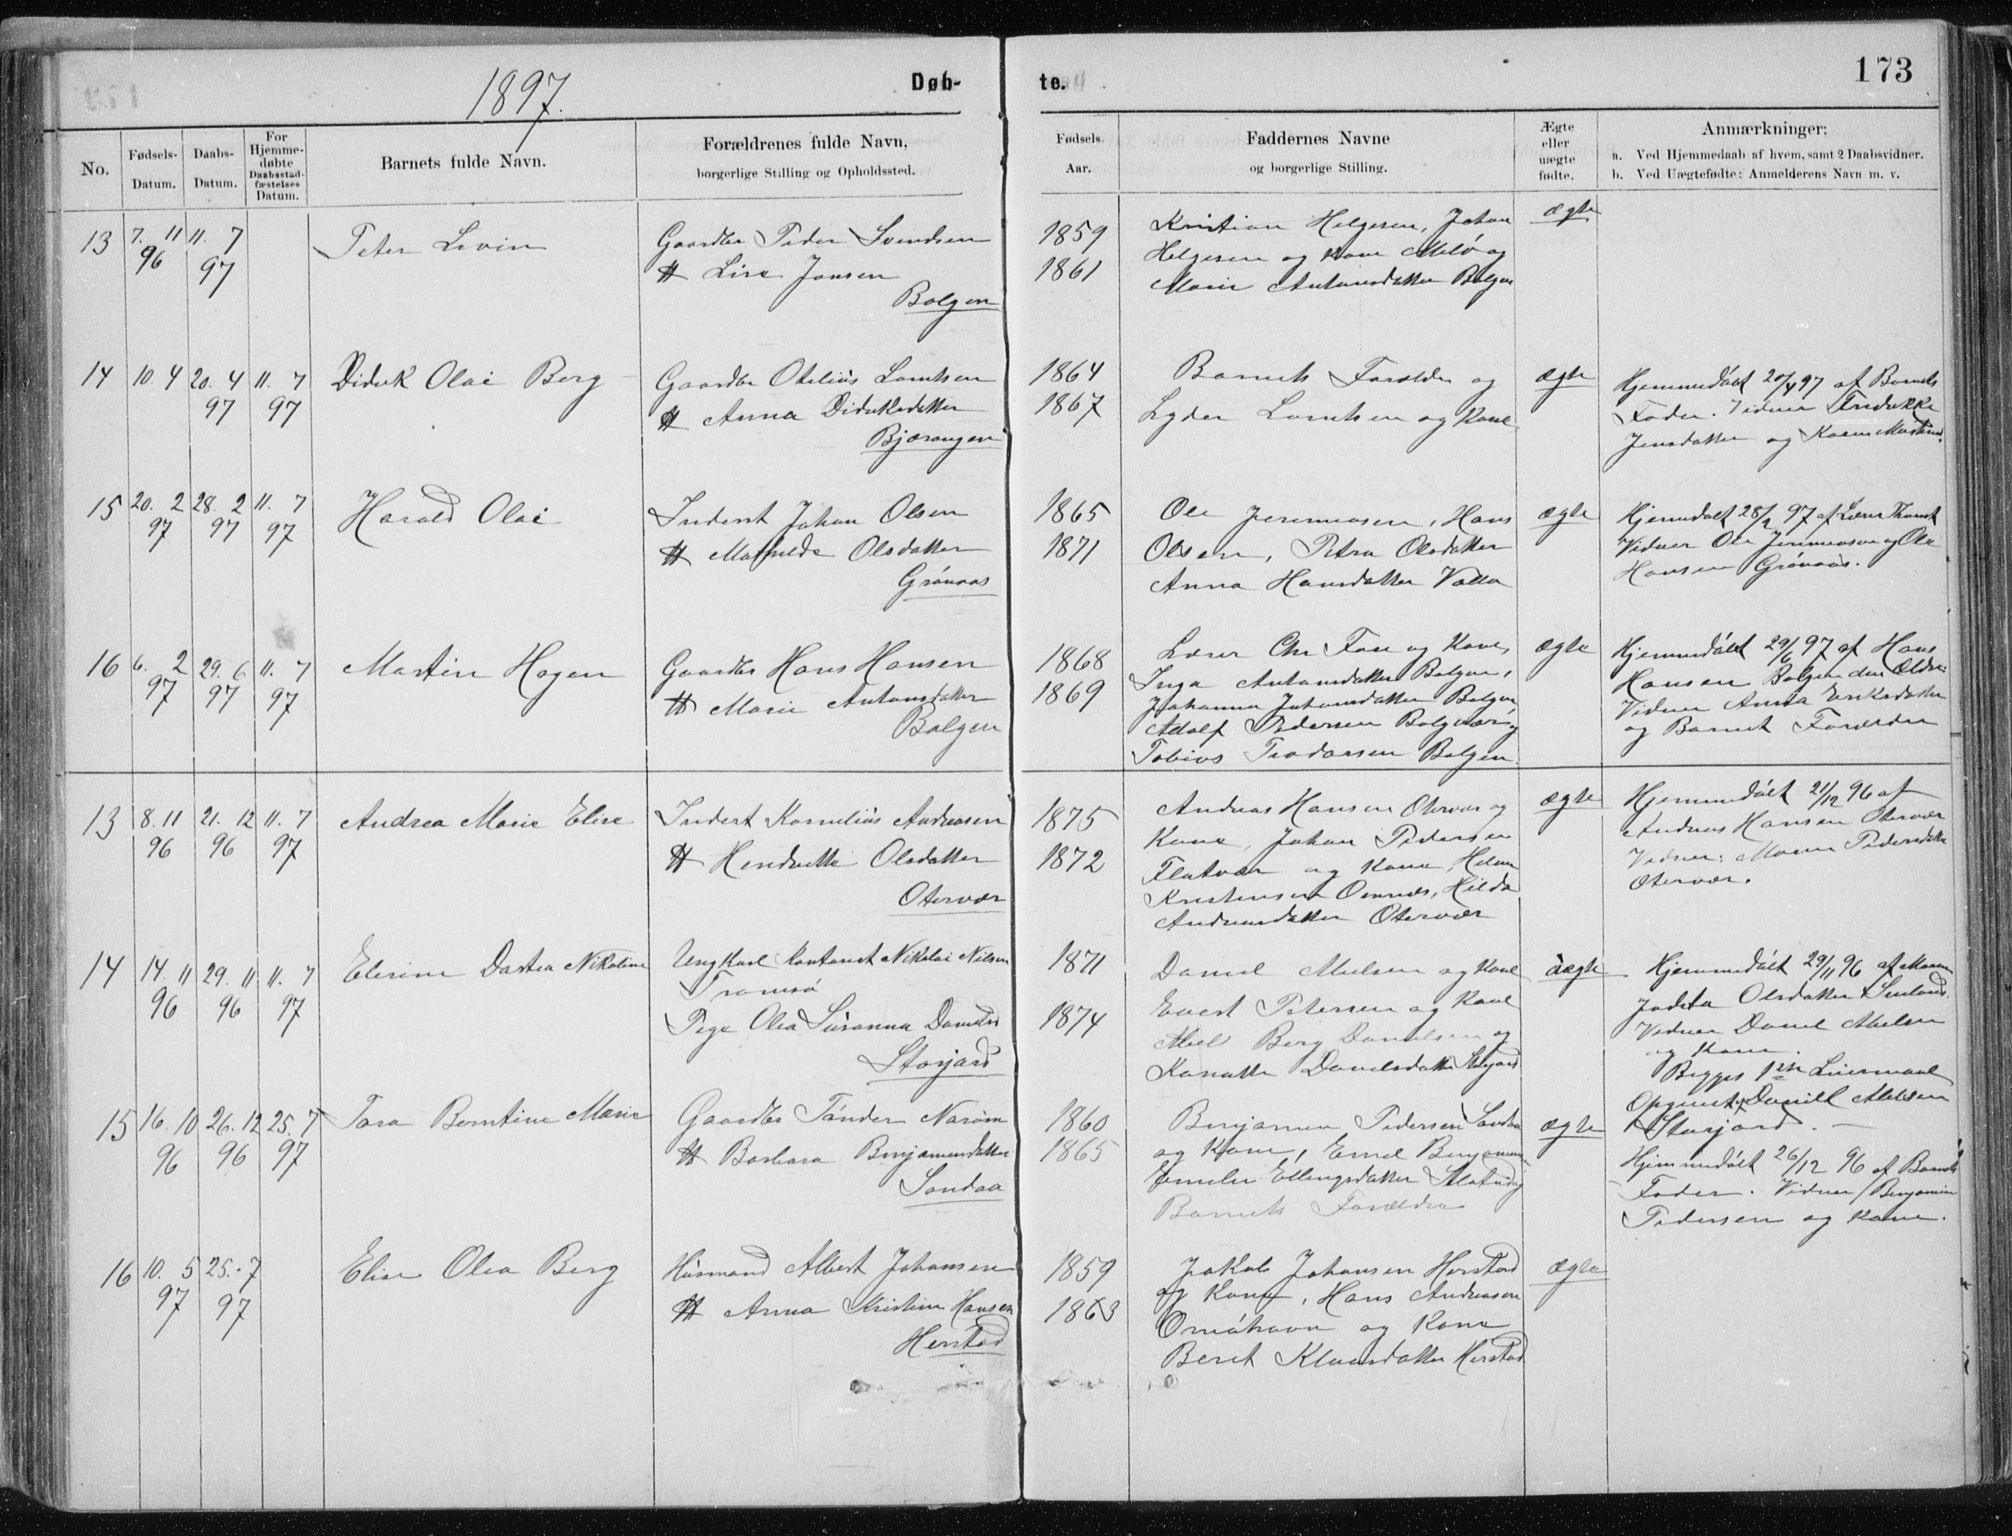 1897.
Døb-
te.
173
No.
Fødsels-
Datum.
Daabs-
Datum.
For
Hjemme-
døbte
Daabsstad-
fæstelses
Datum.
Barnets fulde Navn.
Forældrenes fulde Navn,
borgerlige Stilling og Opholdssted.
Fødsels
Aar.
Faddernes Navne
og borgerlige Stilling.
Ægte
eller
uægte
fødte.
Anmærkninger:
a. Ved Hjemmedaab af hvem, samt 2 Daabsvidner.
b. Ved Uægtefødte: Anmelderens Navn m. v.
13
7. 11
96
11. 7
97
Peter Levin
Gaardbr Peder Svendsen
H Lise Jonsen
Bolgen
1859
1861
Kristian Helgesen, Johan
Helgesen og Kone Melø og
Marie Antonsdatter Bolgen
ægte
14
10. 4
20. 4
97
11. 7
97
Didrik Olai Berg
Gaardbr Otelius Lorntsen
H Anna Didriksdatter
Bjærangen
1864
1867
Barnets Forældre og
Lyder Lorntsen og Kone
ægte
Hjemmedøbt 20/4 97 af Barnets
Fader. Vidner Fredrikke
Jensdatter og Karen
15
20. 2
97
28. 2
97
11. 7
97
Harald Olai
Inderst Johan Olsen
H Mathilde Olsdatter
Grønaas
1865
1871
Ole Jeremiasen, Hans
Olsen, Petra Olsdatter
Anna Hansdatter Valla
ægte
Hjemdøbt 28/2 97 af Lærer
Vidner Ole Jeremiasen og Ole
Hansen Grønaas.
16
6. 2
97
29. 6
97
11. 7
97
Martin Hagen
Gaardbr Hans Hansen
H Marie Antonsdatter
Bolgen
1868
1869
Lærer Chr og Kone,
Inga Antonsdatter Bolgen,
Johanna Johansdatter Bolgen
Adolf Pedersen Bolgvær og
Tobias Teodorsen Bolgen
ægte
Hjemmedøbt 29/6 97 af Hans
Hansen Bolgen den Ældre
Vidner Anna Eriksdatter
og Barnets Forældre
13
8. 11
96
21. 12
96
11. 7
97
Andrea Marie Elise
Inderst Kornelius Andreasen
H Hendrikke Olsdatter
Otervær
1875
1872
Andreas Hansen Otervær og
Kone, Johan Pedersen
Flatvær og Kone,
Kristensen Ornnes, Hilda
Andreasdatter Otervær
ægte
Hjemmedøbt 21/12 96 af
Andreas Hansen Otervær
Vidner: Maren Pedersdatter
Otervær.
14
14. 11
96
29. 11
96
11. 7
97
Elerine Dortea Nikoline
Ungkarl Kontorist Nikolai Nilsen
Tromsø
Pige Olea Susanna Danielsd
Storjord
1871
1874
Daniel Abelsen og Kone
Evert Petersen og Kone
Abel Berg Danielsen og
Danielsdatter Storjord
uægte
Hjemmedøbt 29/11 96 af Maren
Olsdatter
Vidner Daniel Abelsen
og Kone.
Begges 1ste Leiermaal
Opgivet af Daniel Abelsen
Storjord. —
15
16. 10
96
26. 12
96
25. 7
97
Tora Berntine Marie
Gaardbr Tønder
H Barbara Benjaminsdatter
Sandaa
1860
1865
Benjamin Pedersen Sandaa
og Kone, Emil Benjaminsen
Emilie Ellingsdatter og
Barnets Forældre
ægte
Hjemmedøbt 26/12 96 af Barnets
Fader. Vidner Benjamin
Pedersen og Kone.
16
10. 5
97
25. 7
97
Elise Olea Berg
Husmand Albert Johansen
H Anna Kristine Hansen
Herstad
1859
1863
Jakob Johansen Herstad
og Kone, Hans Andreasen
Ornøhavn og Kone
Beret Klausdatter Herstad
ægte